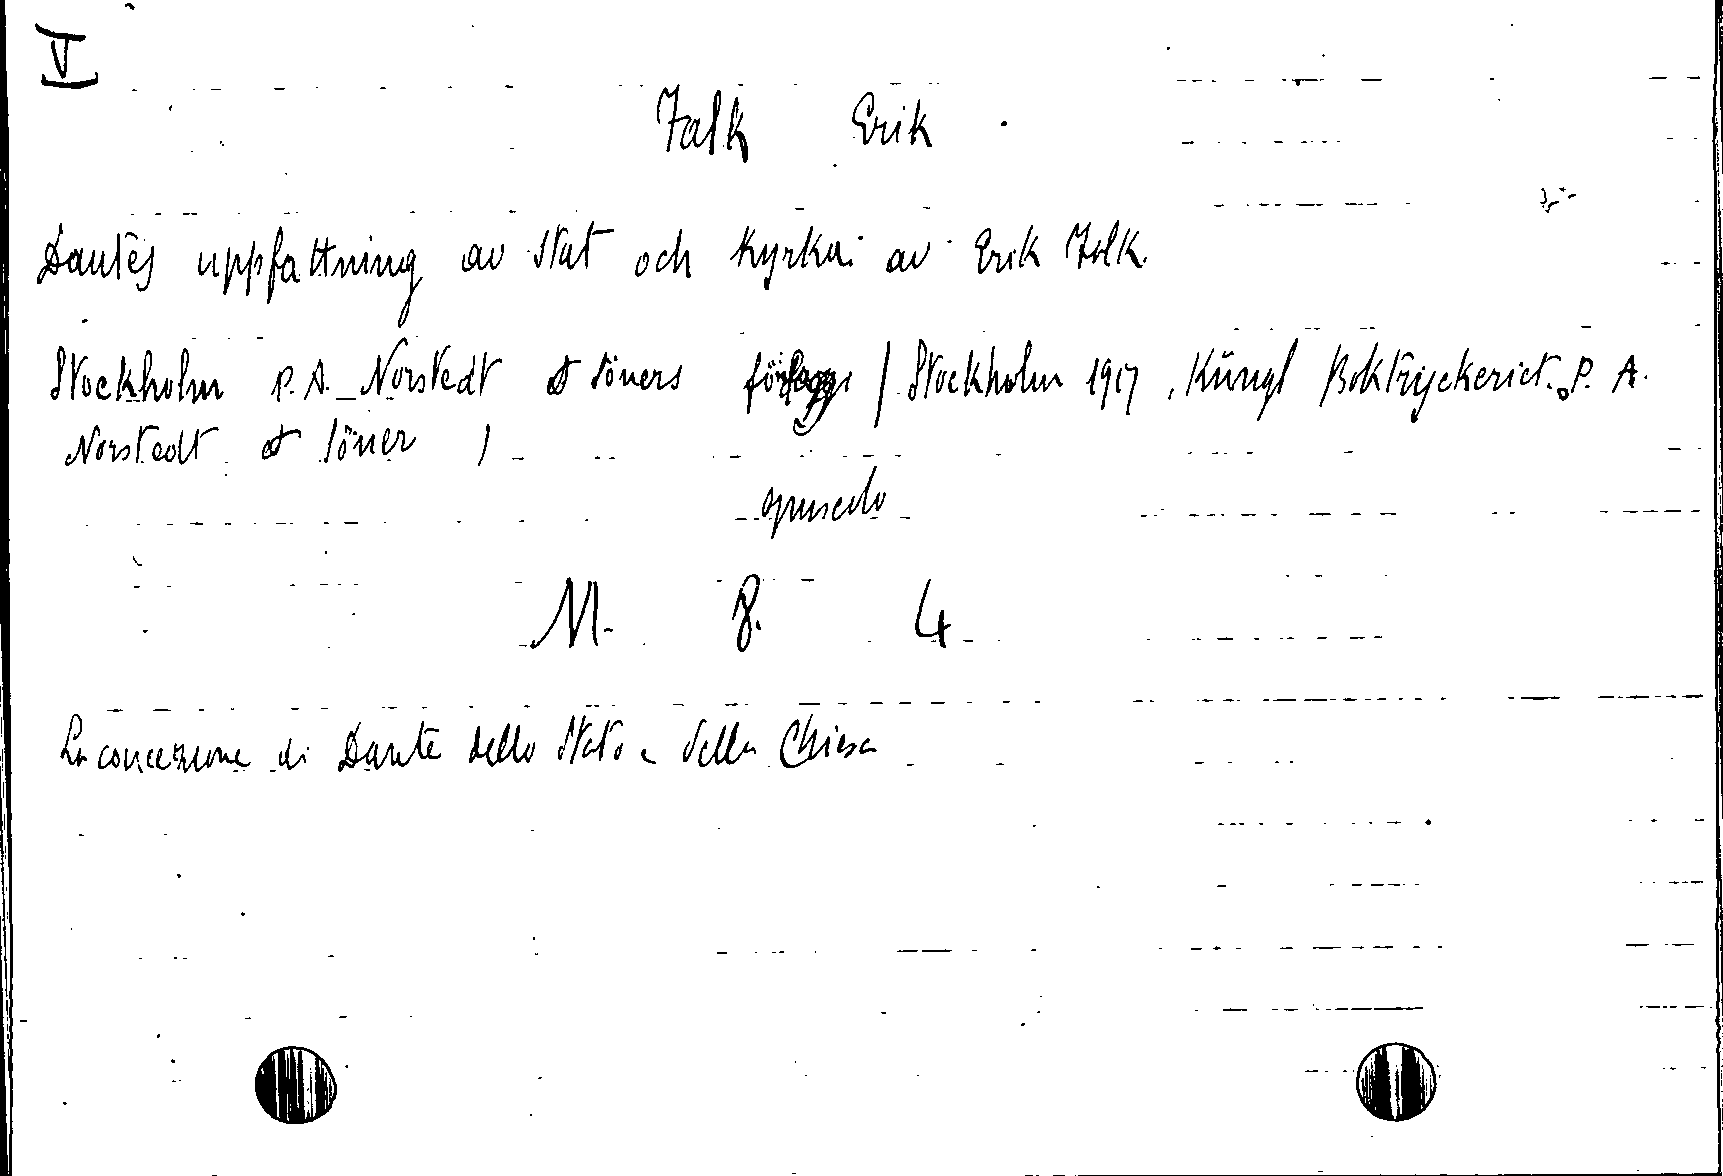 V
Falk Erik
Dantes uppfattning av Stat och Kyrka. av Erik Falk.
Stockholm P. A. Norstedt & Söners förlag / Stockholm 1917, Küngl Boktryckeriet. P. A.
Norstedt & Söner )
opuscolo
M. 8. 4
La concezione di Dante dello Stato e della Chiesa